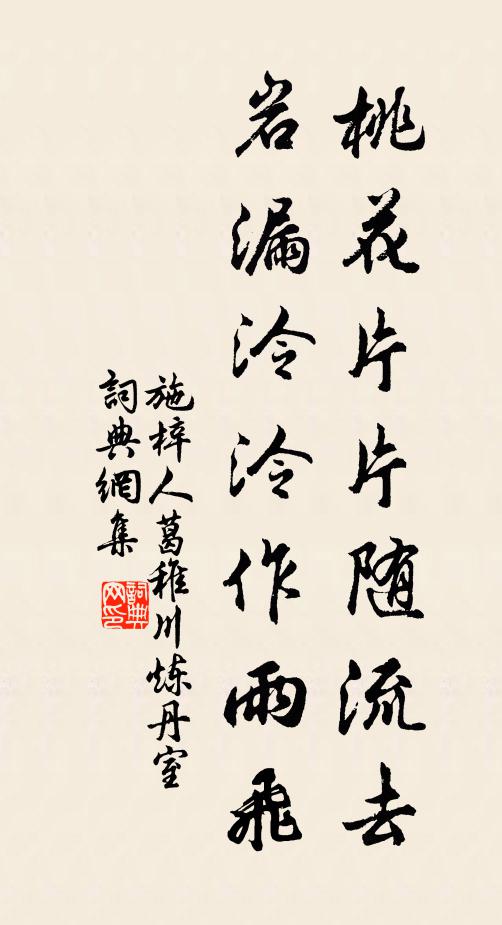 桃花片片随流去
岩漏泠泠作雨飛
施梓人葛稚川炼丹室
詞典網集
詞典网印